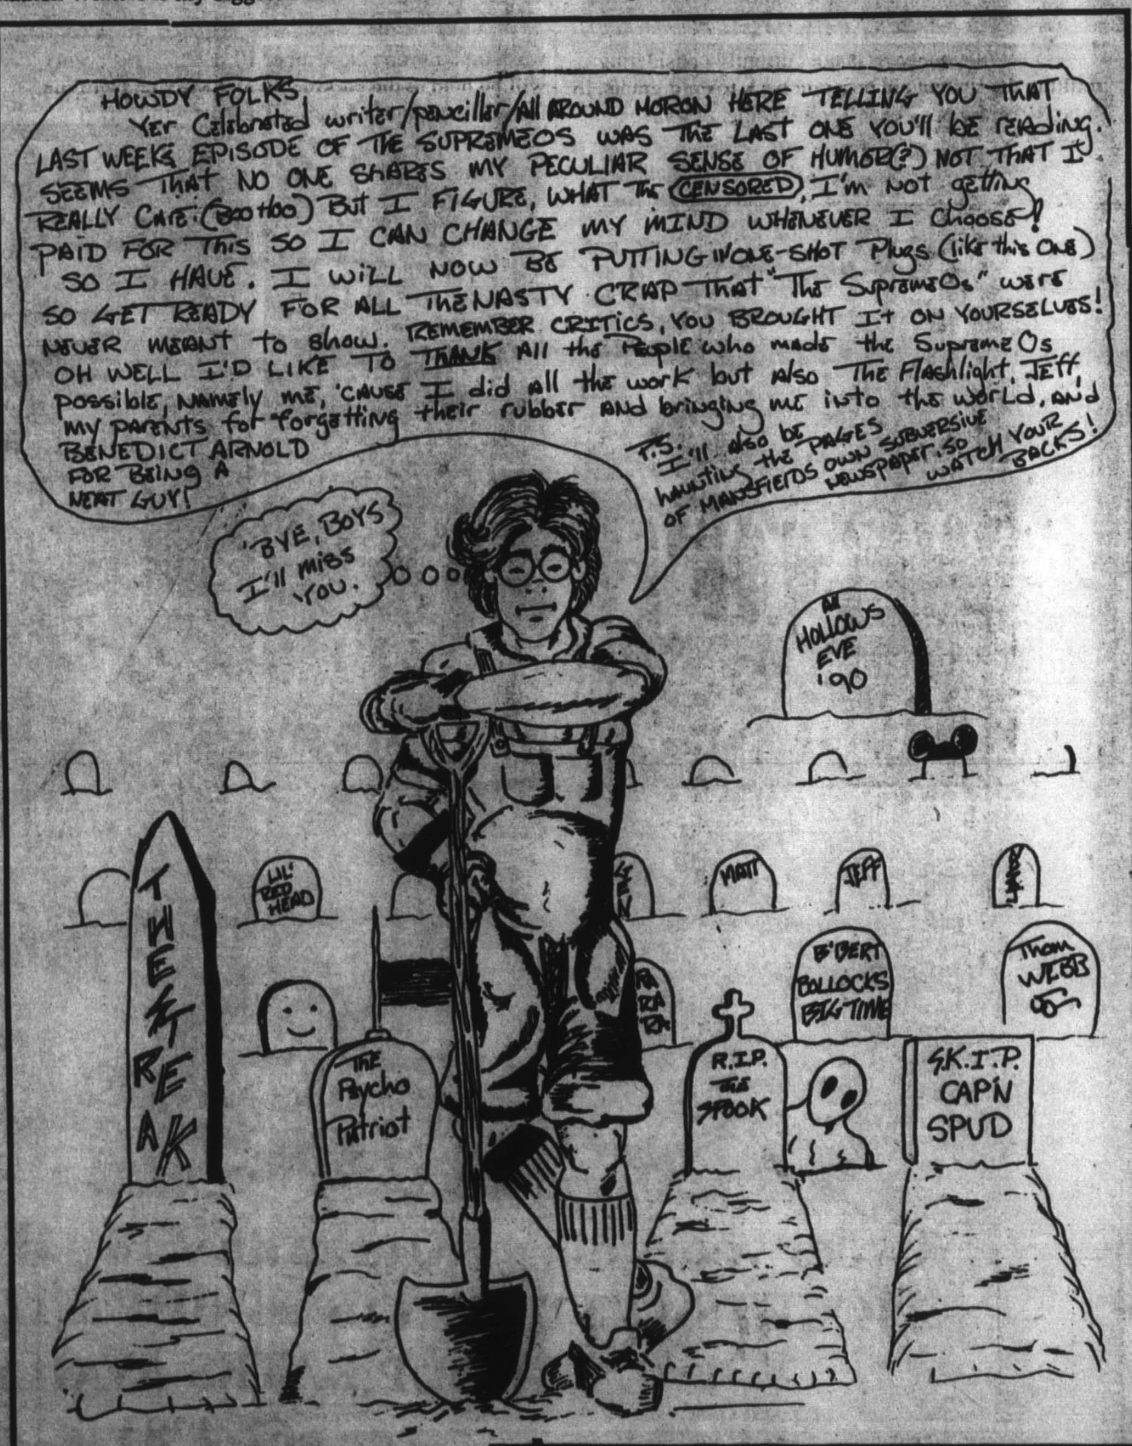 HOWDY FOLKS
Yer Celebrated writer/penciller/All AROUND MORON HERE TELLING YOU THAT
LAST WEEKS EPISODE OF THE SUPREMEOS WAS THE LAST ONE YOU'LL be reading.
SEEMS THAT NO ONE SHARES MY PECULIAR SENSE OF HUMOR(?) NOT THAT I
REALLY CARE.(BOO HOO) BUT I FIGURE, WHAT THE CENSORED, I'm NOT getting
PAID FOR THIS SO I CAN CHANGE MY MIND WHENEVER I CHOOSE!
SO I HAVE. I WILL NOW BE PUTTING IN ONE-SHOT Plugs (like this ONE)
SO GET READY FOR ALL THE NASTY CRAP THAT "The SupremeOs" were
NEVER MEANT to show. REMEMBER CRITICS, YOU BROUGHT It ON YOURSELVES!
OH WELL I'D LIKE TO THANK All the People who made the SupremeOs
possible, NAMELY me, 'CAUSE I did all the work but also The Flashlight, JEFF,
my parents for forgetting their rubber and bringing me into the world, AND
BENEDICT ARNOLD
FOR BEING A
NEAT GUY!
P.S.
I'll also be
haunting the PAGES
OF MANSFIELDS OWN SUBVERSIVE
NEWSPAPER, SO
WATCH YOUR
BACKS!
'BYE, BOYS
I'll miss
YOU.
All
HOLLOWS
EVE
'90
LIL'
RED
HEAD
MATT
JEFF
THE STREAK
B'BERT
BOLLOCKS
BIG TIME
Thom
WEBB
RA
RA
RA
The
Psycho
Patriot
R.I.P.
THE
SPOOK
S.K.I.P.
CAP'N
SPUD